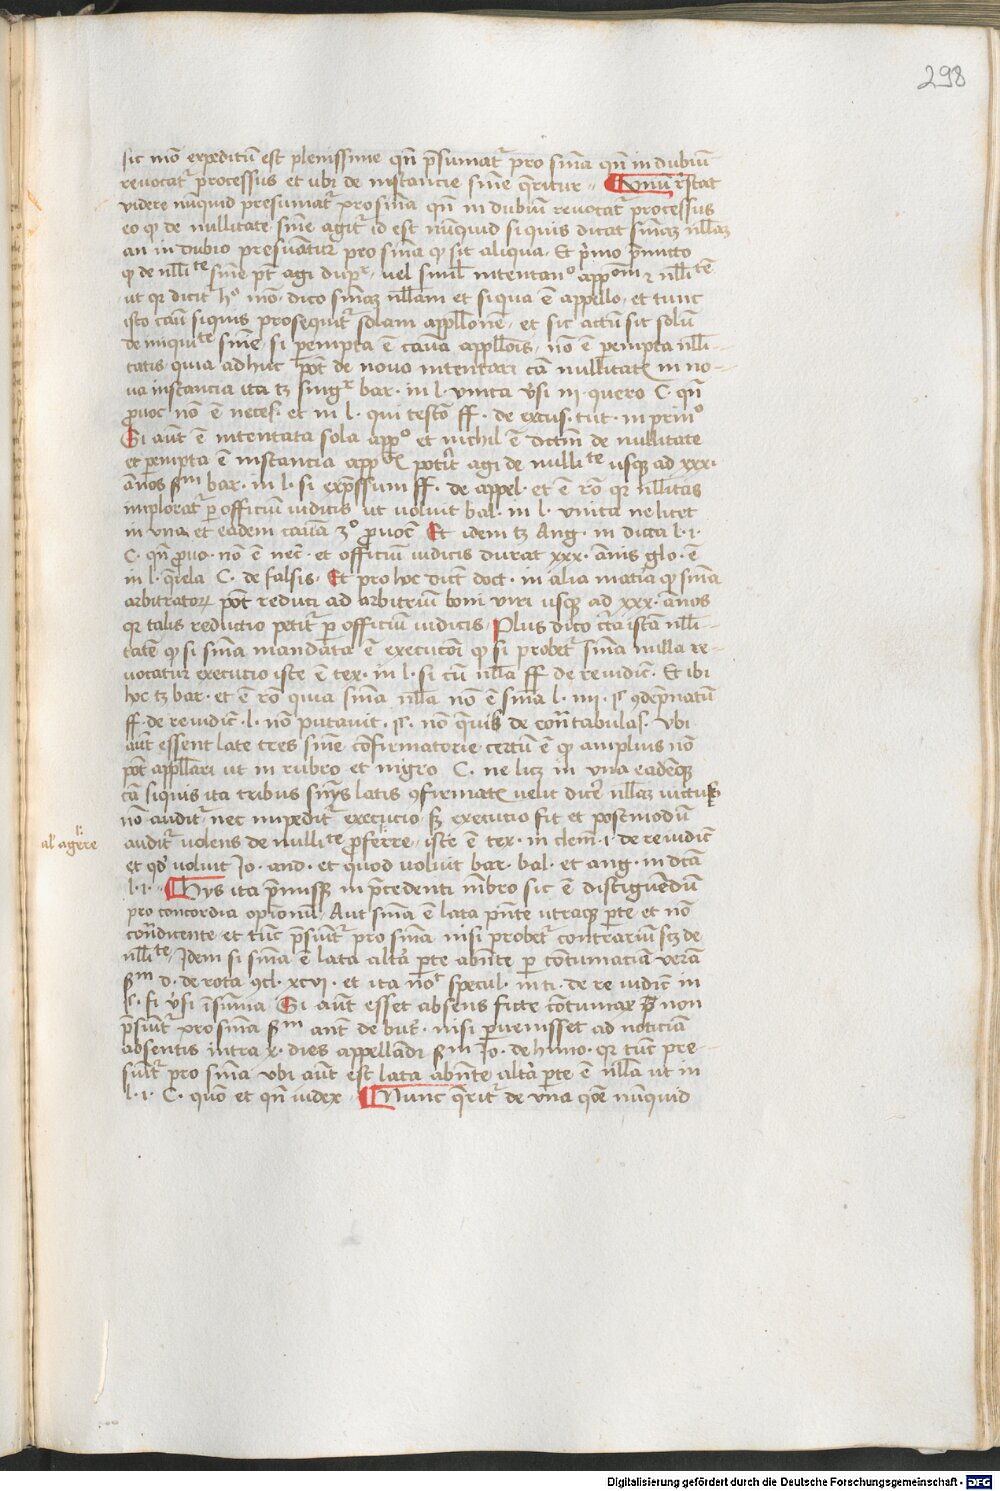 298
sic mō expeditū est plenissime qn̄ p̄sumat͛ pro sn̄ia qn̄ in dubiū
revocat͛ processus et ubi de instancie sn̄ie q̄ritur ¶ Unū r̄stat
videre nūquid presumat͛ pro sn̄ia qn̄ in dubiū revocat͛ processus
eo qꝫ de nullitate sn̄ie agit͛ id est nūquid si quis dicat sn̄iaꝫ nll̄aꝫ
an in dubio presumatur pro sn̄ia qꝫ sit aliqua. Et p̄mo p̄mitto
qꝫ de nlli^te sn̄ie pt̄ agi dupͬ. vel simul intentanº app^om ⁊ nlli^tē
ut qꝛ dicit hº mō. dico sn̄iaꝫ nllam et si qua ē appello. et tunc
isto casu si quis prosequit͛ solam appll̄onē. et sic actū sit solū
de iniqui^te sn̄ie. si pempta ē causa appll̄ois. nō ē pempta nlli-
tatis. quia adhuc pōt de novo intentari cā nullitat͛ in no-
va instancia ita tꝫ sing͛ bar. in l. unica v̄si iij. quero C. qn̄
ꝓvoc̄ nō ē neces. et in l. qui testō ff. de excus. tut. in prinº
Si aūt ē intentata sola appº et nichil ē dictm̄ de nullitate
et pempta ē instancia app^ois potit͛ agi de nulli^te usqꝫ ad xxx.
ānos ẜm bar. in l. si exp̄ssum ff. de appel. et ē rō qꝛ nll̄itas
implorat͛ ꝑ officiū iudicis ut voluit bal. in l. unica ne licet
in una et eadem causa 3º ꝓvoc̄ Et idem tꝫ Ang. in dicta l. i.
C. qn̄ ꝓvo. nō ē nec̄. et officiū iudicis durat xxx. ānis glo. ē
in l. q̄rela C. de falsis. Et pro hoc dict̄ doct. in alia mat̄ia qꝫ sn̄ia
arbitratoꝝ pōt reduci ad arbitriū boni viri usqꝫ ad xxx. ānos
qꝛ talis reductio petit͛ ꝑ officiū iudicis. Plus dico c̄ta istā nll̄i-
tatē qꝫ si sn̄ia mandata ē executōi qꝫ si probet͛ sn̄ia nulla re-
vocatur execucio iste ē tex. in l. si cū nll̄a ff. de re iudic̄. Et ibi
hoc tꝫ bar. et ē rō quia sn̄ia nll̄a nō ē sn̄ia l. iiij. §. ꝯdēpnatū
ff. de re iudic̄. l. nō putavit. §. nō q̄vis de coñ tabulas. Ubi
aūt essent late tres sn̄ie cōfirmatorie certū ē qꝫ amplius nō
pōt appll̄ari ut in rubro et nigro C. ne licꝫ in una eadēqꝫ
cā si quis ita tribus sn̄ijs latis ꝯfirmat͛ velit dic̄e nll̄aꝫ victus
nō audit͛ nec impedit͛ execucio. sꝫ execucio fit et postmodū
audit͛ volens de nulli^te ꝓferre. iste ē tex. in clem̄. i. de re iudic̄
al' agere
et qd' voluit Jo. and. et quod voluit bar. bal. et ang. in dcā
l. i. ¶ Hys ita p̄missis in p̄cedenti mēbro sic ē distiguēdū
pro concordia opionū. Aut sn̄ia ē lata pn̄te utraqꝫ pͬte et nō
cont̄dicente et tūc p̄sūit͛ pro sn̄ia nisi probet͛ contrariū sꝫ de
nll̄i^te. Idem si sn̄ia ē lata alt̄a pͬte abn̄te ꝑ cōtumaciā verā
ẜm d. de rota ꝯcl. xcvi. et ita nº specul. in ti. de re iudic̄ in
§. fi v̄si īsumia Si aūt esset absens ficte cōtumax non
p̄sūit͛ pro sn̄ia ẜm ant̄ de but̄. nisi ꝑvenisset ad noticiā
absentis intra x. dies appellādi ẜm Jo. de himo. qꝛ tūc pre-
sūit͛ pro sn̄ia ubi aūt est lata abn̄te alt̄a pͬte ē nll̄a ut in
l. i. C. quō et qn̄ iudex ¶ Nunc q̄rit͛ de una qōe nūquid
Digitalisierung gefördert durch die Deutsche Forschungsgemeinschaft - DFG